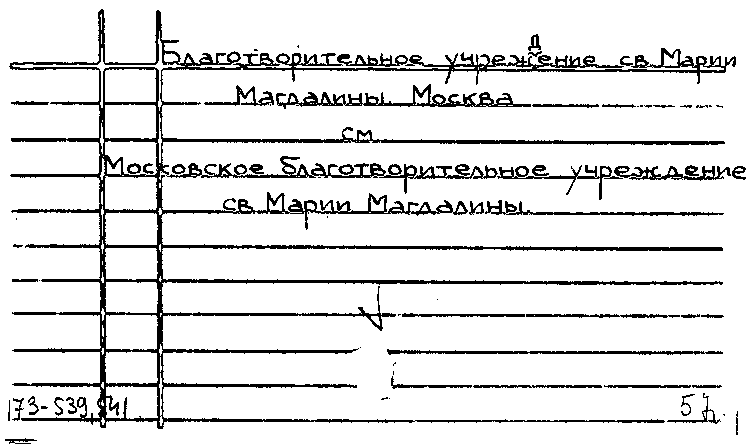 Благотворительное учреждение св Марии
Магдалины. Москва
см.
Московское благотворительное учреждение
св. Марии Магдалины.